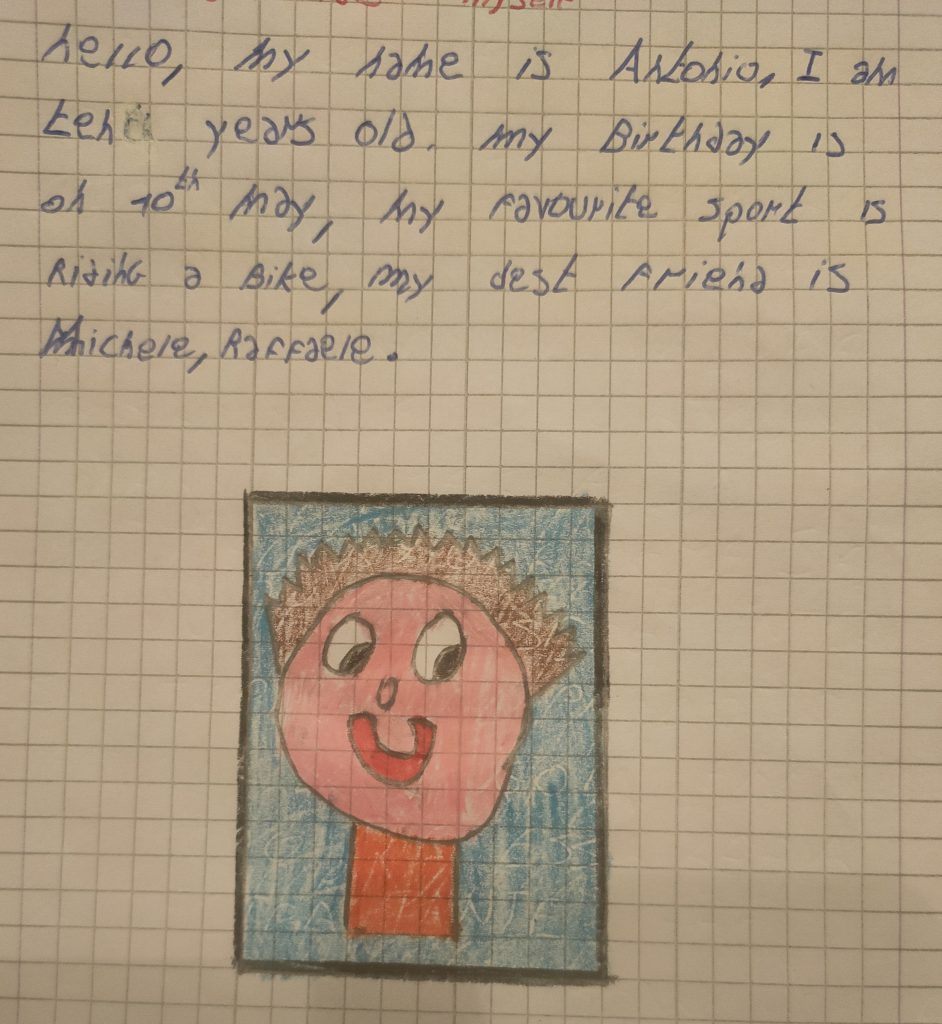 myself
hello, my name is Antonio, I am
ten years old. my Birthday is
on 10th may, my favourite sport is
Riding a Bike, my dest Friend is
Michele, Raffaele.